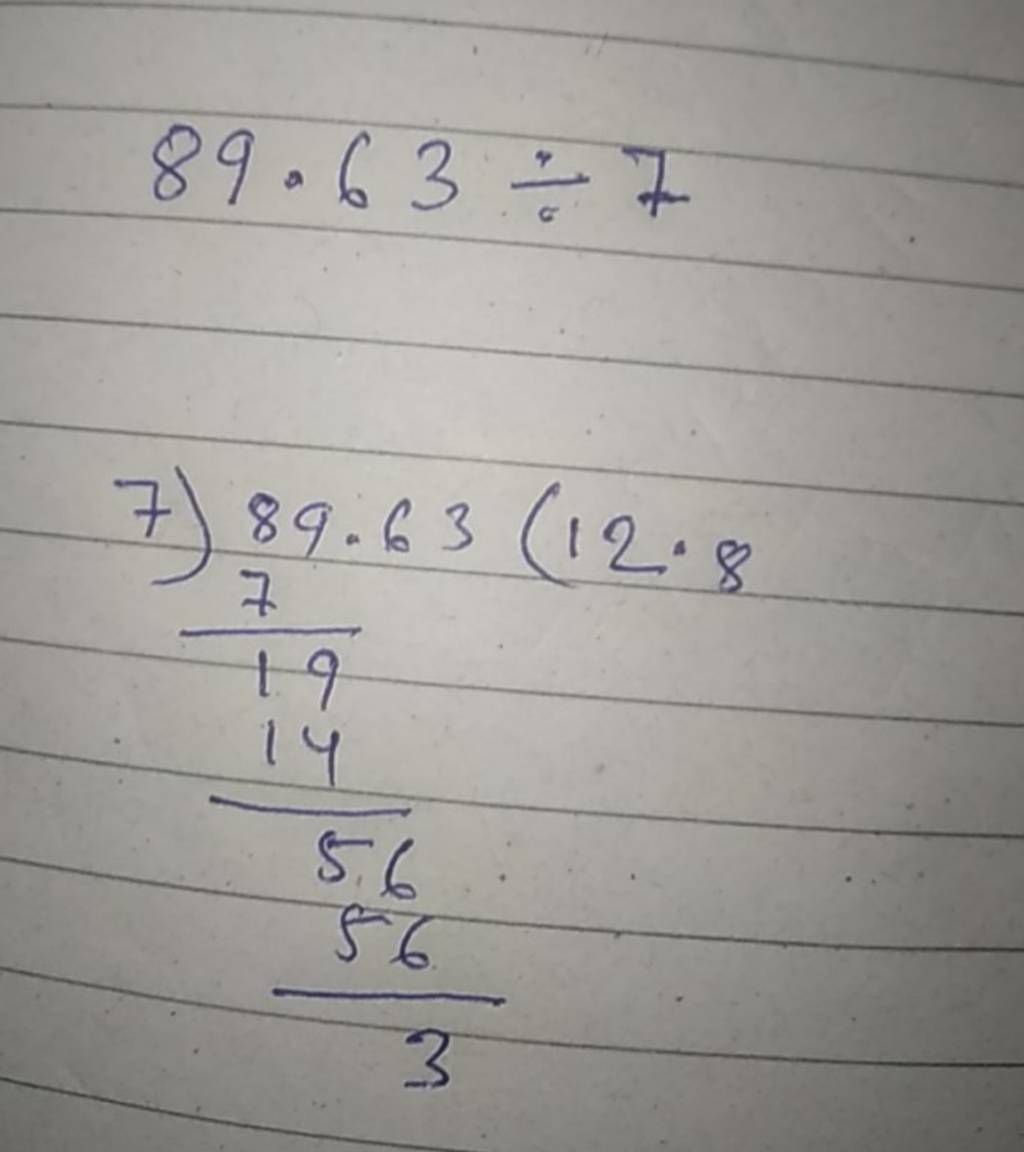 89.63 ÷ 7
7) 89.63 (12.8
7
19
14
56
56
3